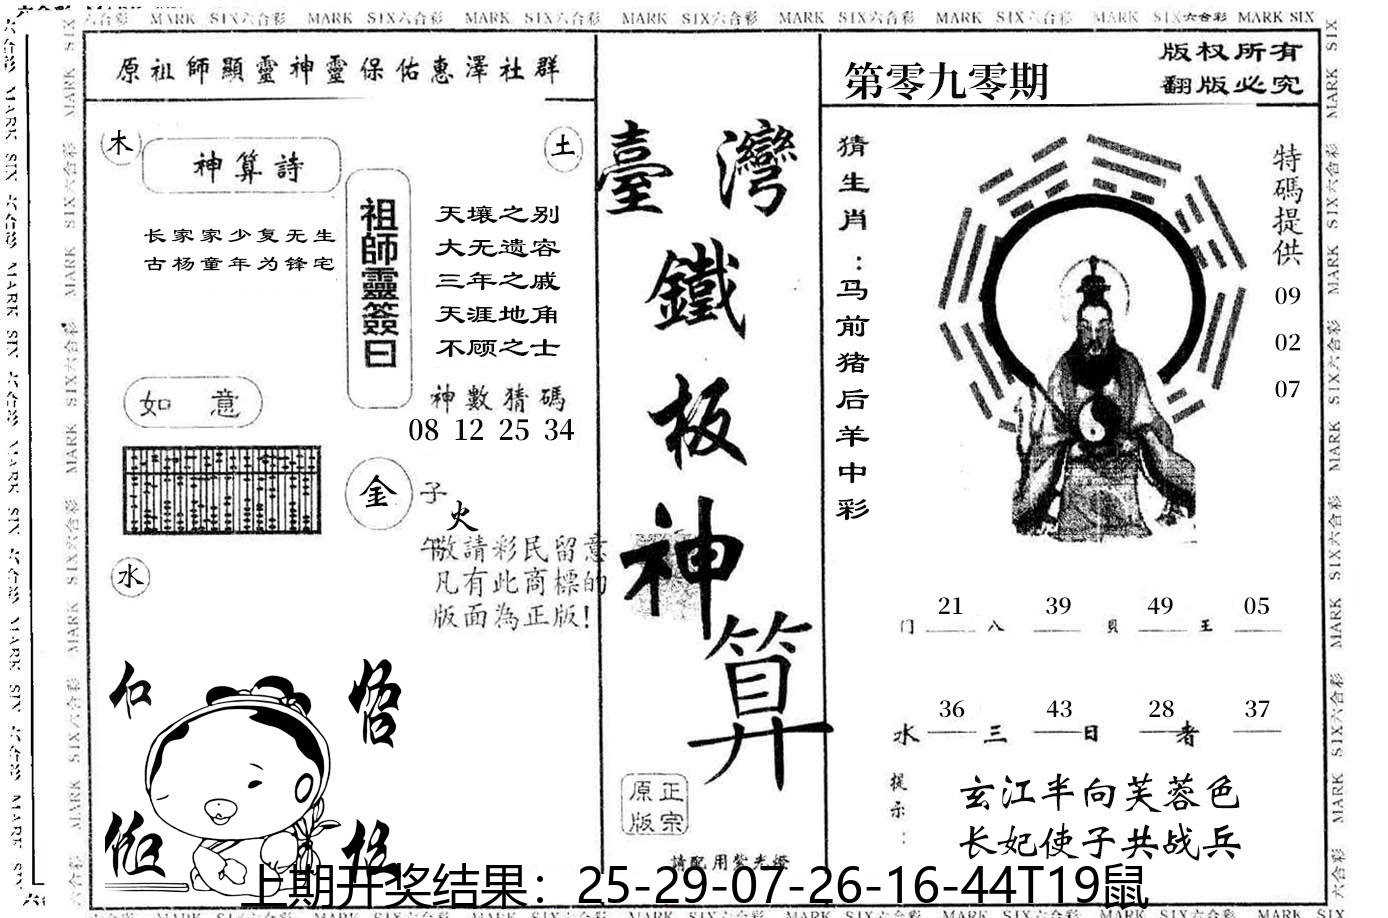 MARK SIX六合彩 MARK SIX六合彩 MARK SIX六合彩 MARK SIX六合彩 MARK SIX六合彩 MARK SIX六合彩 MARK SIX六合彩 MARK SIX
原祖師顯靈神靈保佑惠澤社群
木
神算詩
土
长家家少复无生
古杨童年为锋宅
祖師靈簽曰
天壤之别
大无遗容
三年之戚
天涯地角
不顾之士
如意
神數猜碼
08 12 25 34
金
子
火
午
敬請彩民留意
凡有此商標的
版面為正版!
水
臺灣
鐵
板
神
算
正宗
原版
請配用紫光燈
第零九零期
版权所有
翻版必究
猜生肖:马前猪后羊中彩
特碼提供
09
02
07
21 39 49 05
门 八 贝 王
36 43 28 37
水 三 日 者
提示:
玄江半向芙蓉色
长妃使子共战兵
上期开奖结果：25-29-07-26-16-44T19鼠